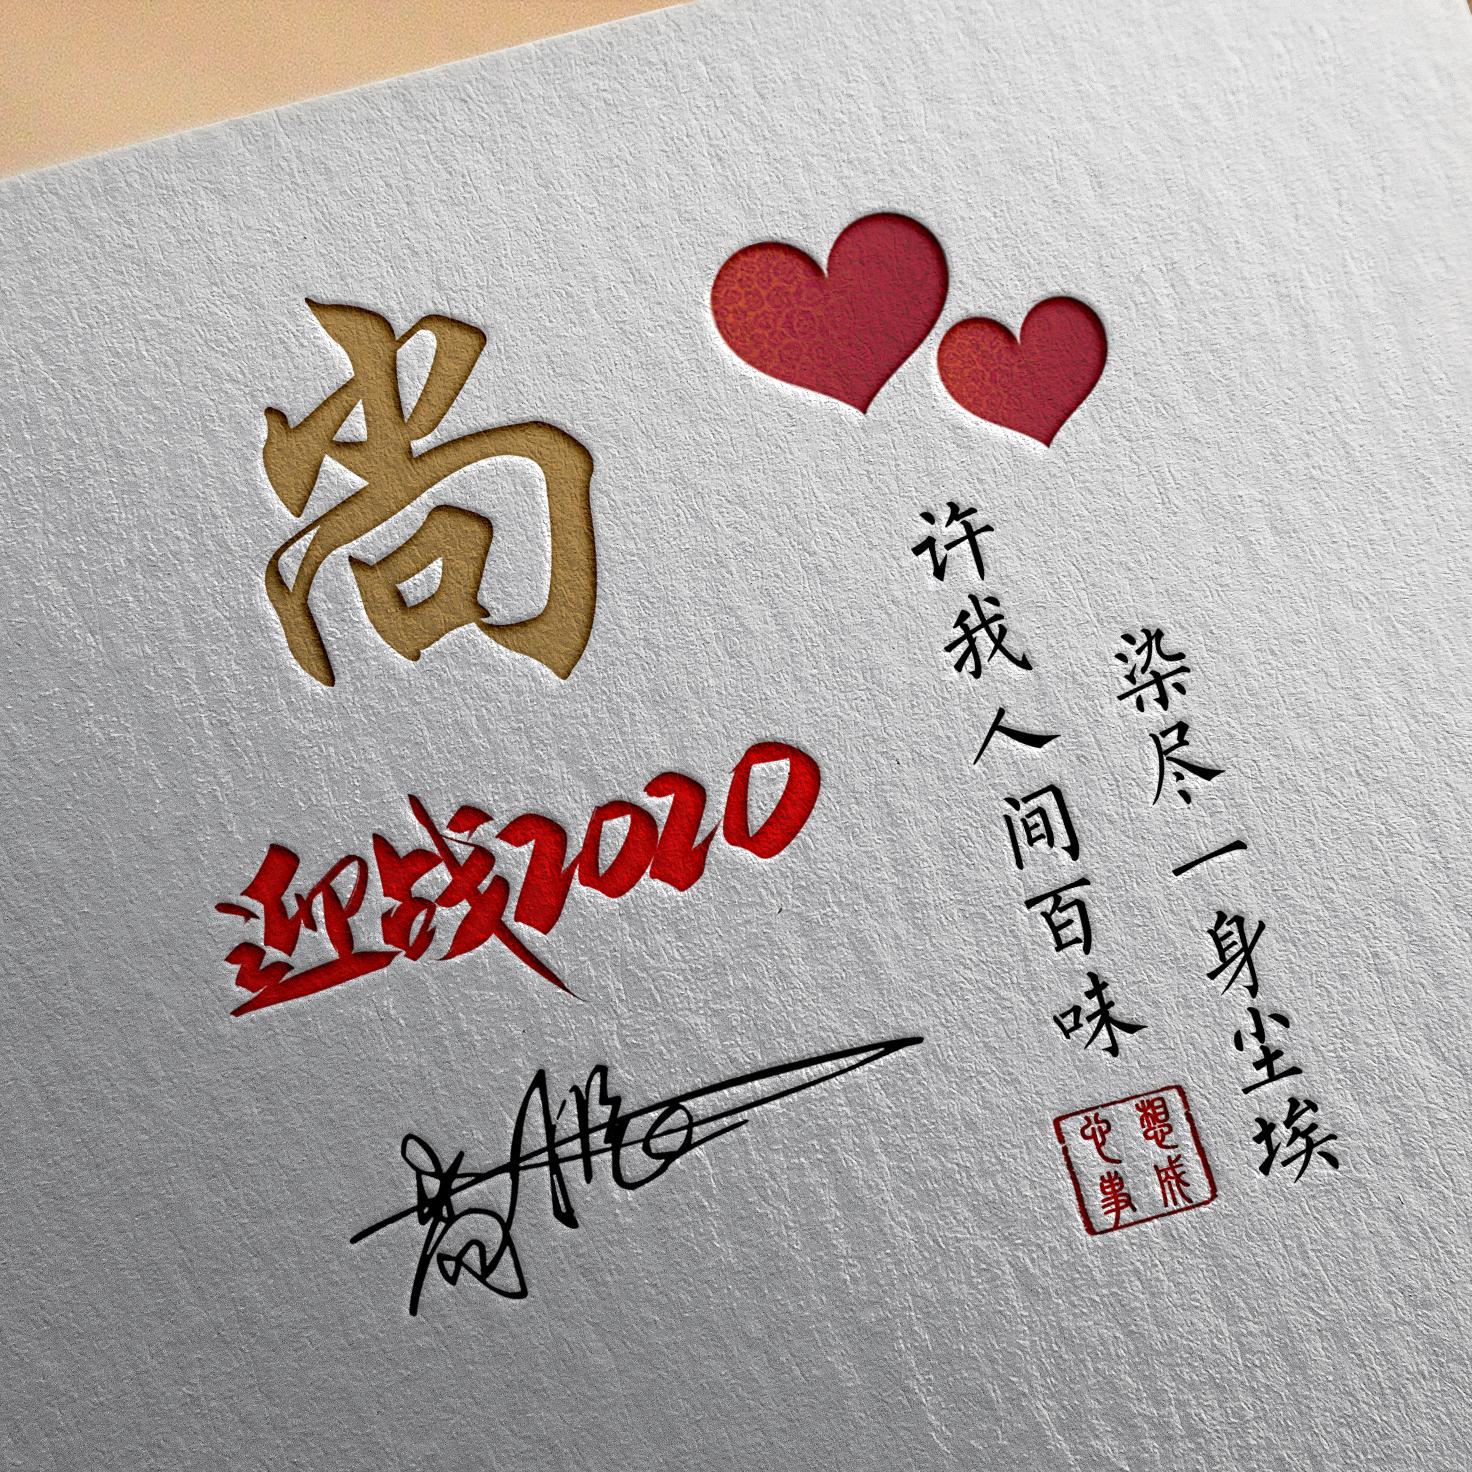 尚
迎战2020
许我人间百味
染尽一身尘埃
心想事成